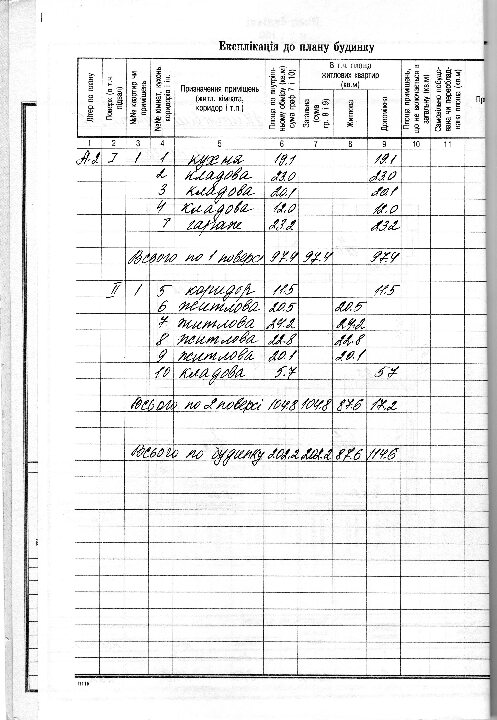 Експлікація до плану будинку
Літер по плану
Поверх (в т.ч. підвал)
№№ квартир чи приміщень
№№ кімнат, кухонь коридорів і ін.
Призначення приміщень (житл. кімната, коридор і т.п.)
Площа по внутрішньому обміру (кв.м) сума граф 7 і 10)
В т.ч. площа житлових квартир (кв.м)
Загальна (сума гр. 8 і 9)
Житлова
Допоміжна
Площа приміщень, що не включається в загальну (кв.м)
1 2 3 4 5 6 7 8 9 10 11
А-2 I 1 1 кухна 19.1 19.1
2 кладова 23.0 23.0
3 кладова 20.1 20.1
4 кладова 12.0 12.0
гараж 23.2 23.2
Всього по 1 поверсі 97.4 97.4 97.4
II 1 5 коридор 11.5 11.5
6 житлова 20.5 20.5
7 житлова 24.2 24.2
8 житлова 22.8 22.8
9 житлова 20.1 20.1
10 кладова 5.7 5.7
Всього по 2 поверсі 104.8 104.8 87.6 17.2
Всього по будинку 202.2 202.2 87.6 114.6